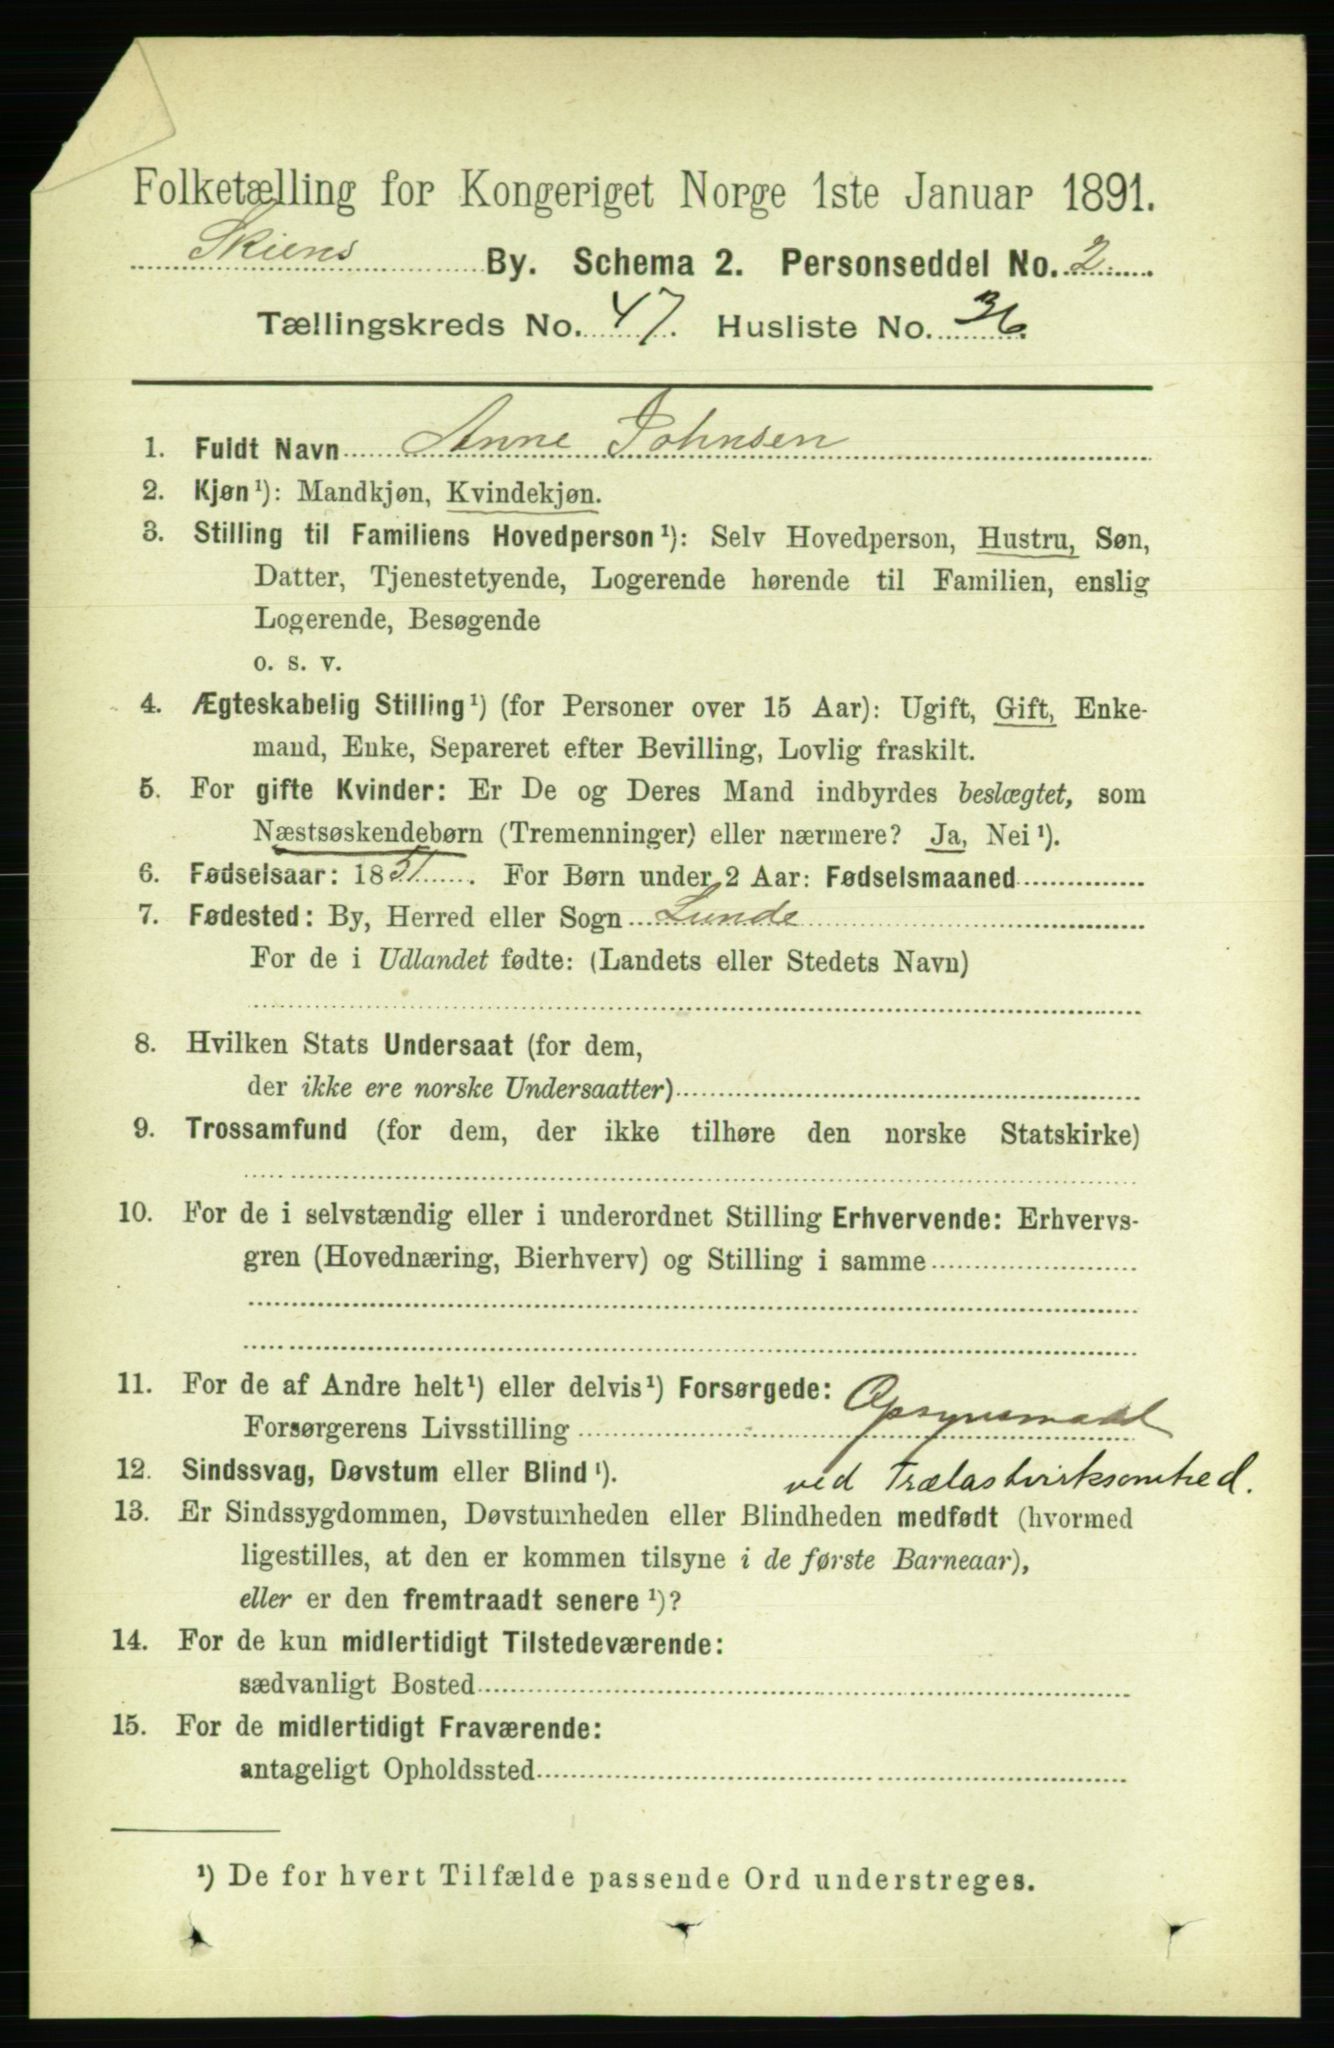 Folketælling for Kongeriget Norge 1ste Januar 1891.
Skiens By. Schema 2. Personseddel No. 2
Tællingskreds No. 47. Husliste No. 36.
1. Fuldt Navn Anne Johnsen
2. Kjøn¹): Mandkjøn, Kvindekjøn.
3. Stilling til Familiens Hovedperson¹): Selv Hovedperson, Hustru, Søn,
Datter, Tjenestetyende, Logerende hørende til Familien, enslig
Logerende, Besøgende
o. s. v.
4. Ægteskabelig Stilling¹) (for Personer over 15 Aar): Ugift, Gift, Enke-
mand, Enke, Separeret efter Bevilling, Lovlig fraskilt.
5. For gifte Kvinder: Er De og Deres Mand indbyrdes beslægtet, som
Næstsøskendebørn (Tremenninger) eller nærmere? Ja, Nei¹).
6. Fødselsaar: 1851. For Børn under 2 Aar: Fødselsmaaned
7. Fødested: By, Herred eller Sogn Lunde
For de i Udlandet fødte: (Landets eller Stedets Navn)
8. Hvilken Stats Undersaat (for dem,
der ikke ere norske Undersaatter)
9. Trossamfund (for dem, der ikke tilhøre den norske Statskirke)
10. For de i selvstændig eller i underordnet Stilling Erhvervende: Erhvervs-
gren (Hovednæring, Bierhverv) og Stilling i samme
11. For de af Andre helt¹) eller delvis¹) Forsørgede:
Forsørgerens Livsstilling Opsynsmand
12. Sindssvag, Døvstum eller Blind¹). ved Trælastvirksomhed.
13. Er Sindssygdommen, Døvstumheden eller Blindheden medfødt (hvormed
ligestilles, at den er kommen tilsyne i de første Barneaar),
eller er den fremtraadt senere¹)?
14. For de kun midlertidigt Tilstedeværende:
sædvanligt Bosted
15. For de midlertidigt Fraværende:
antageligt Opholdssted
¹) De for hvert Tilfælde passende Ord understreges.